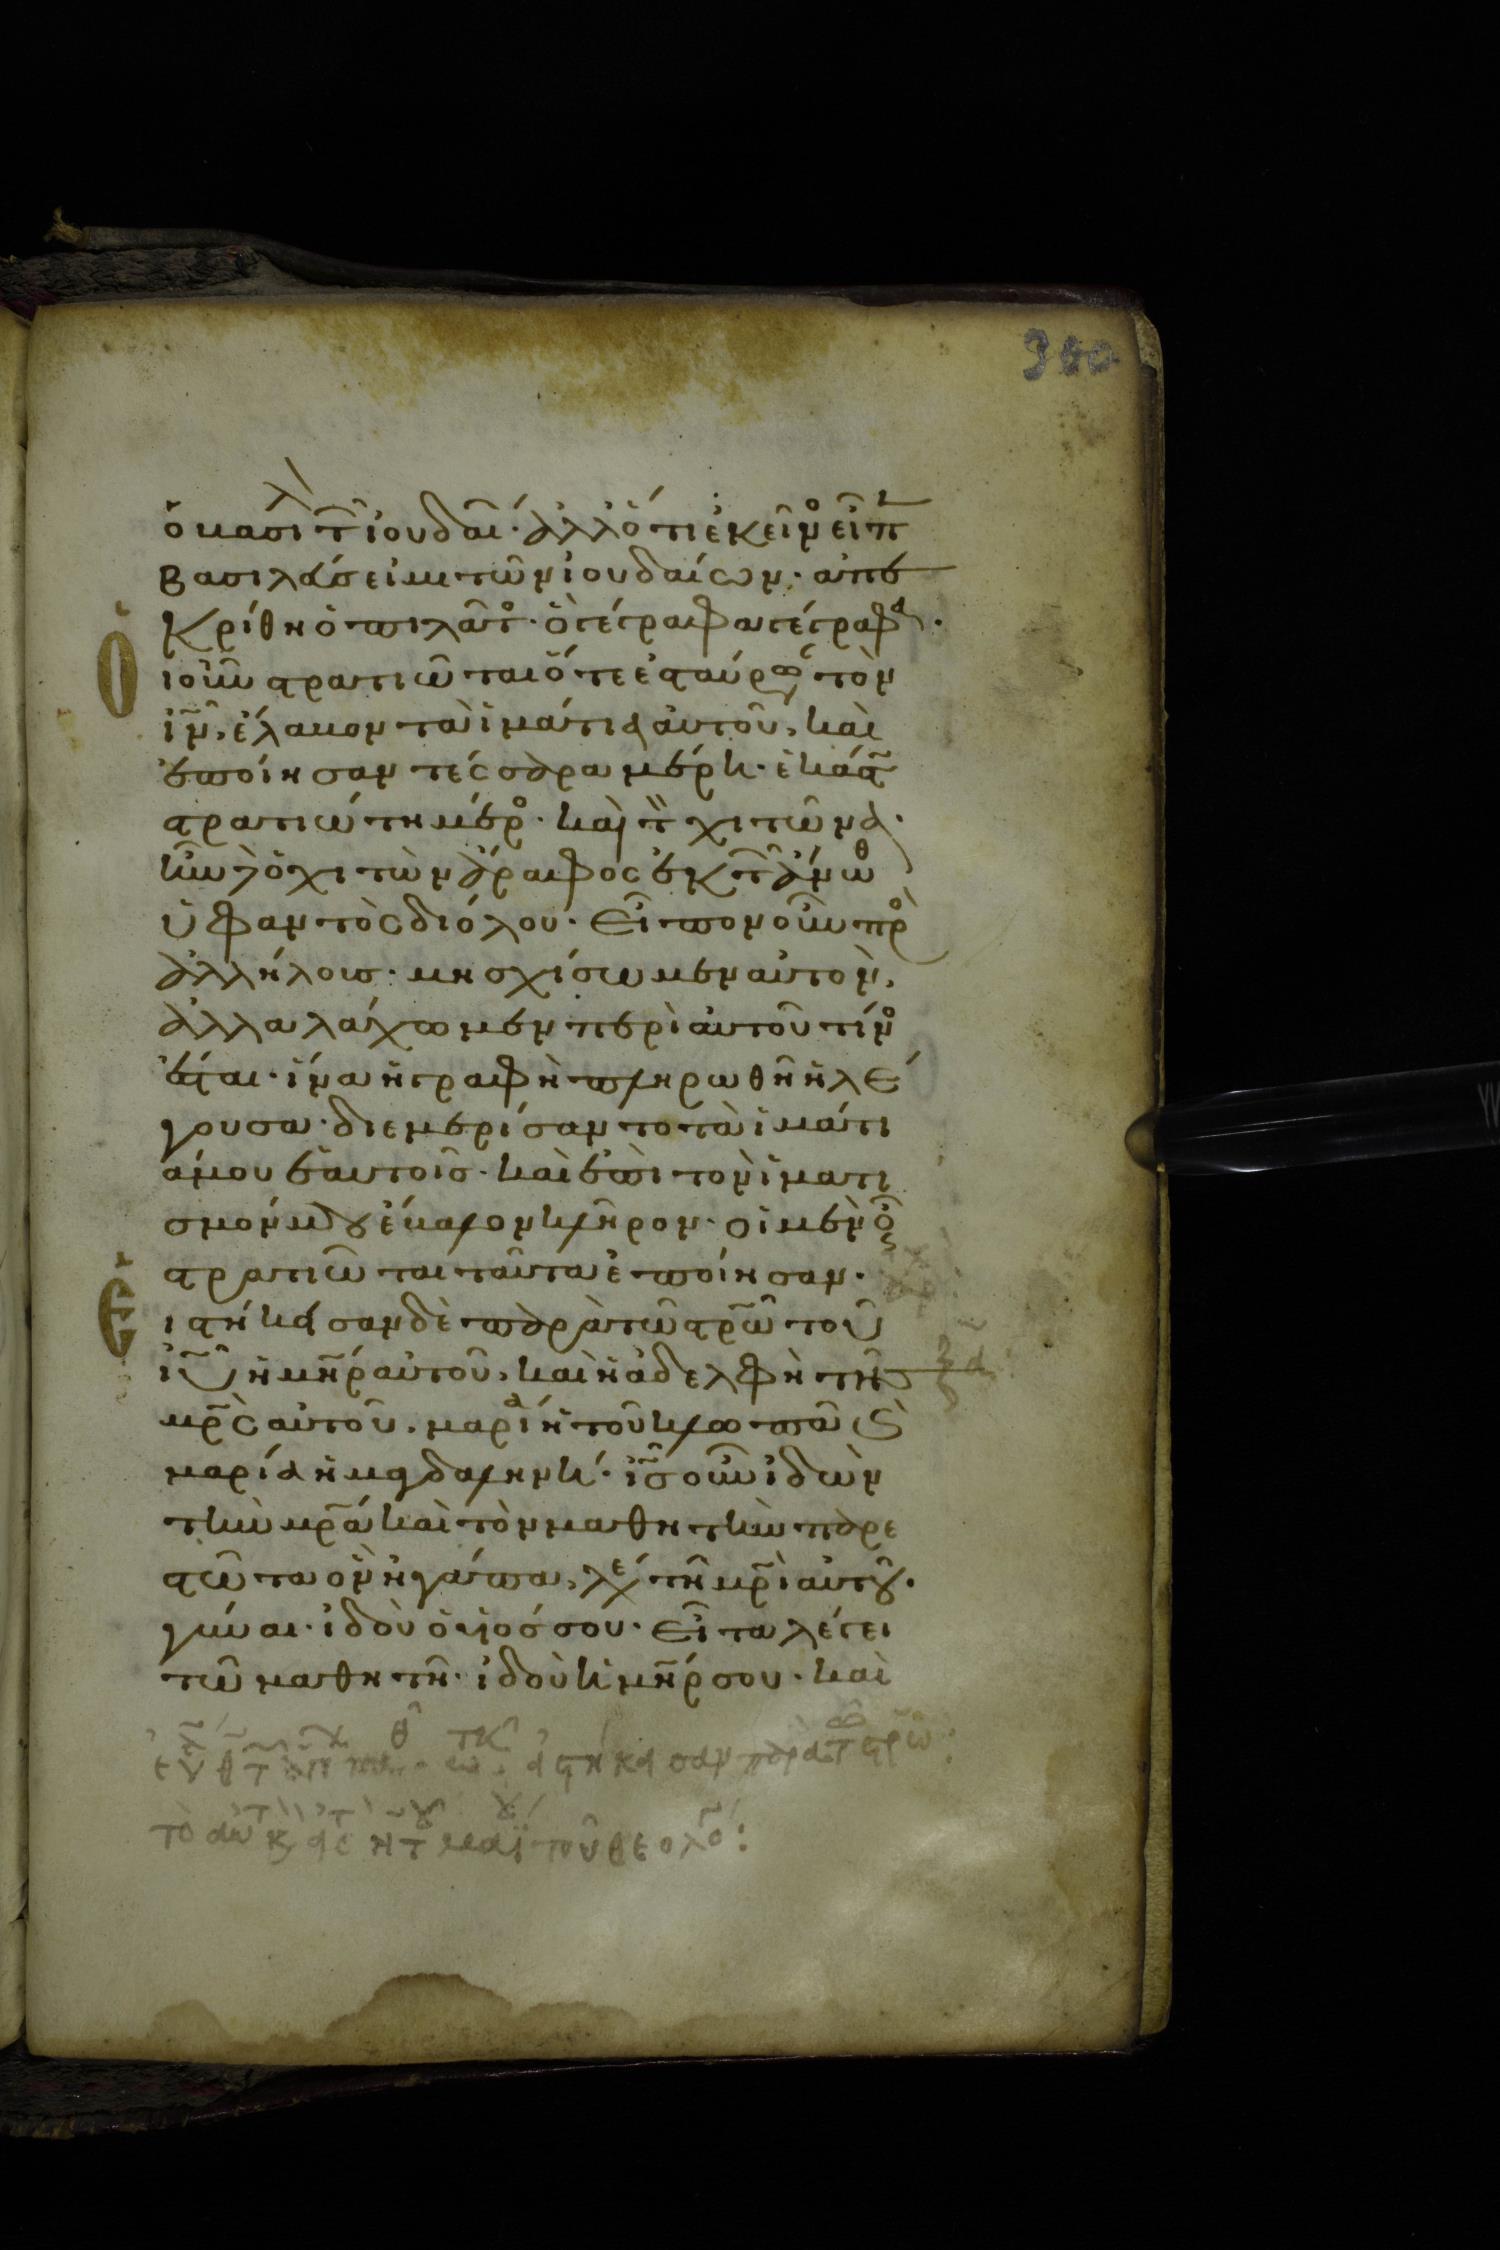 ὁ βασι^λ τῶ ἰουδαί· ἀλλ ὅτι ἐκεῖνο εἶπ
βασιλεύς εἰμι τῶν ἰουδαίων· ἀπε
κρίθη ὁ πιλᾶτο· ὃ γέγραφα γέγραφα·
Ὁ
ι οὖν στρατιῶται ὅτε ἐσταύρω τὸν
ἰν̄, ἔλαβον τὰ ἱμάτια αὐτοῦ, καὶ
ἐποίησαν τέσσαρα μέρη· ἑκάστ
στρατιώτη μέρο· καὶ τ χιτῶνα·
ἦν δὲ ὁ χιτὼν ἄραφος ἐκ τῶ ἄνωθ
ὑφαντὸς δι ὅλου· εἶπον οὖν πρ
ἀλλήλοις· μη σχίσωμεν αὐτον,
ἀλλα λάχωμεν περὶ αὐτοῦ τίνο
ἔσται· ἵνα ἡ γραφὴ πληρωθῆ ἡ λέ
γουσα· διεμερίσαντο τὰ ἱμάτι
ά μου ἑαυτοῖς· καὶ ἐπὶ τον ἱματι
σμόν μου ἔβαλον κλῆρον· οἱ μὲν οὖ
στρατιῶται ταῦτα ἐποίησαν·
Ε
ιστήκεσαν δὲ παρὰ τῶ στρῶ τοῦ
ἰῦ ἡ μη̄ρ αὐτοῦ, καὶ ἡ ἀδελφὴ τῆς
μρ̄ς αὐτοῦ, μαρία ἡ τοῦ κλωπᾶ καὶ
μαρία ἡ μαγδαληνή· ἰς̄ οὖν ἰδὼν
τὴν μρ̄α καὶ τὸν μαθητὴν παρε
στῶτα ὃν ἠγάπα, λέγ τῆ μρ̄ὶ αὐτοῦ·
γύναι· ἰδοὺ ὁ υἱός σου· εἶτα λέγει
τῶ μαθητῆ· ἰδοὺ ἡ μη̄ρ σου· καὶ